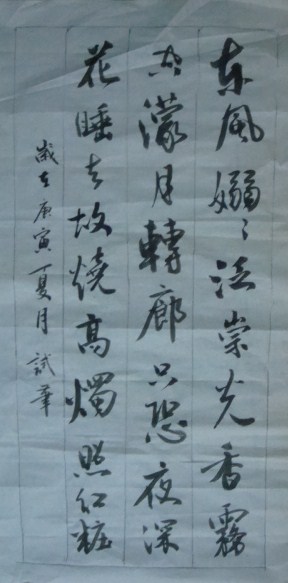 东風嫋〻泛崇光香霧
空濛月轉廊只恐夜深
花睡去故燒高燭照红粧
歲在庚寅夏月試筆